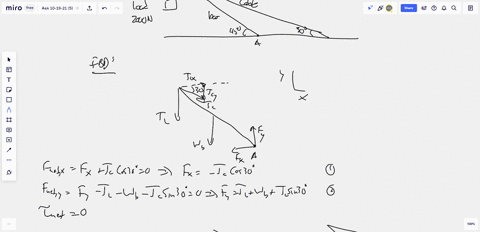 miro
Aen 10-19-21 (5)
Share
load
200N
bar
Cable
45°
30°
A
FBD:
30°
Tc
TL
Wb
Fy
Fx
A
y
x
Fnet,x = Fx + Tc Cos30° = 0 => Fx = -Tc Cos30° ①
Fnet,y = Fy - TL - Wb - Tc Sin30° = 0 => Fy = TL + Wb + Tc Sin30° ②
τnet = 0
100%